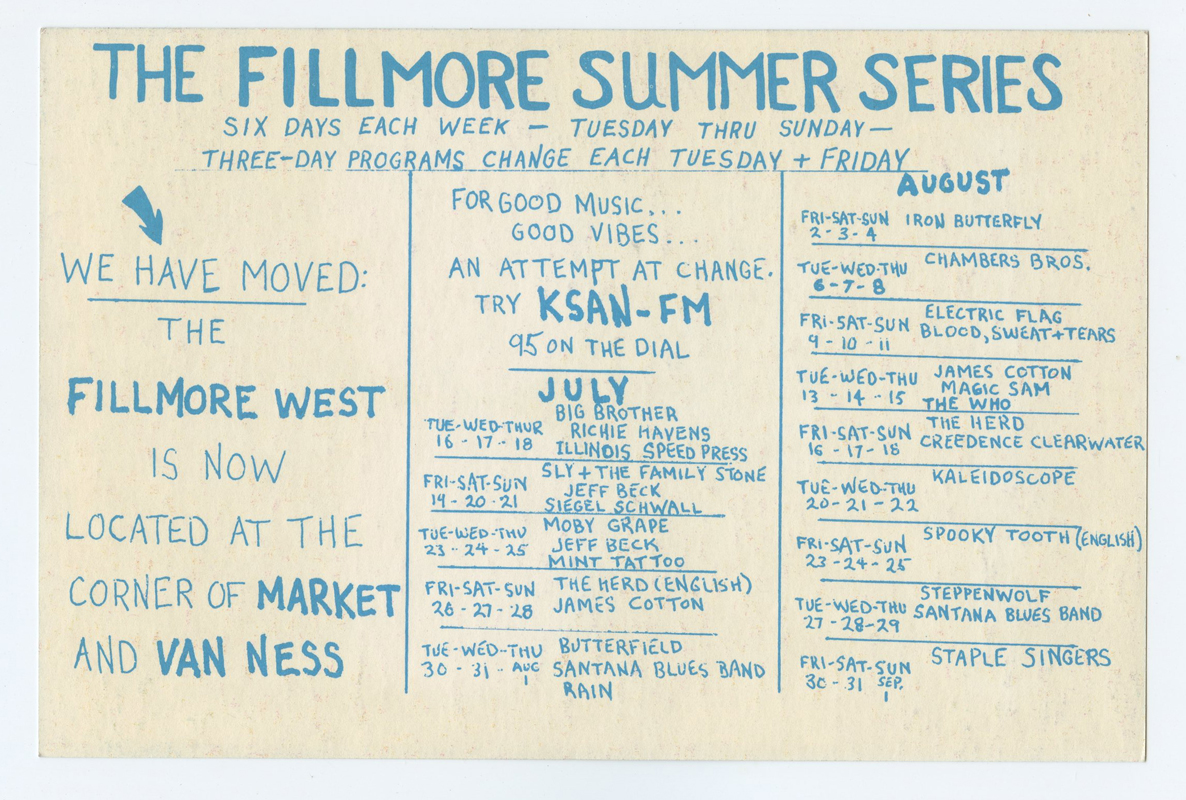 THE FILLMORE SUMMER SERIES
SIX DAYS EACH WEEK — TUESDAY THRU SUNDAY—
THREE-DAY PROGRAMS CHANGE EACH TUESDAY + FRIDAY
WE HAVE MOVED:
THE
FILLMORE WEST
IS NOW
LOCATED AT THE
CORNER OF MARKET
AND VAN NESS
FOR GOOD MUSIC...
GOOD VIBES...
AN ATTEMPT AT CHANGE.
TRY KSAN-FM
95 ON THE DIAL
JULY
TUE-WED-THUR BIG BROTHER
16 - 17 - 18 RICHIE HAVENS
ILLINOIS SPEED PRESS
FRI-SAT-SUN SLY + THE FAMILY STONE
19 - 20 - 21 JEFF BECK
SIEGEL SCHWALL
TUE-WED-THU MOBY GRAPE
23 - 24 - 25 JEFF BECK
MINT TATTOO
FRI-SAT-SUN THE HERD (ENGLISH)
26 - 27 - 28 JAMES COTTON
TUE-WED-THU BUTTERFIELD
30 - 31 - AUG 1 SANTANA BLUES BAND
RAIN
AUGUST
FRI-SAT-SUN IRON BUTTERFLY
2 - 3 - 4
TUE-WED-THU CHAMBERS BROS.
6 - 7 - 8
FRI-SAT-SUN ELECTRIC FLAG
9 - 10 - 11 BLOOD, SWEAT + TEARS
TUE-WED-THU JAMES COTTON
13 - 14 - 15 MAGIC SAM
THE WHO
FRI-SAT-SUN THE HERD
16 - 17 - 18 CREEDENCE CLEARWATER
TUE-WED-THU KALEIDOSCOPE
20 - 21 - 22
FRI-SAT-SUN SPOOKY TOOTH (ENGLISH)
23 - 24 - 25
TUE-WED-THU STEPPENWOLF
27 - 28 - 29 SANTANA BLUES BAND
FRI-SAT-SUN STAPLE SINGERS
30 - 31 SEP. 1